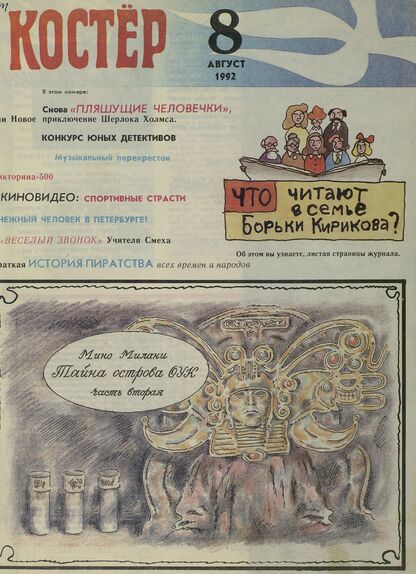 КОСТЁР
8
АВГУСТ
1992
В этом номере:
Снова «ПЛЯШУЩИЕ ЧЕЛОВЕЧКИ»,
Новое приключение Шерлока Холмса.
КОНКУРС ЮНЫХ ДЕТЕКТИВОВ
Музыкальный перекресток
икторина-500
КИНОВИДЕО: СПОРТИВНЫЕ СТРАСТИ
НЕЖНЫЙ ЧЕЛОВЕК В ПЕТЕРБУРГЕ!
«ВЕСЕЛЫЙ ЗВОНОК» Учителя Смеха
раткая ИСТОРИЯ ПИРАТСТВА всех времен и народов
ЧТО читают
в семье
Борьки Кирикова?
Об этом вы узнаете, листая страницы журнала.
Мино Милани
Тайна острова ОУК
часть вторая